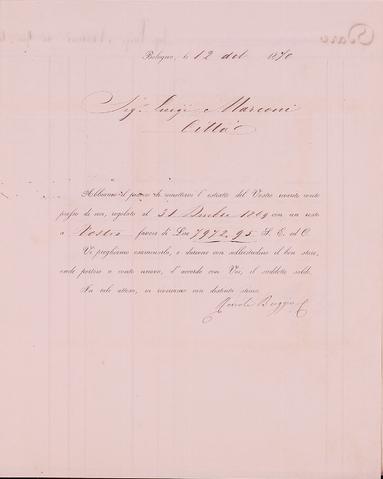 Bologna, li 12 del 1870
Sig. Luigi Marconi
Città
Abbiamo il piacere di rimettervi l'estratto del Vostro conto
presso di noi, regolato al 31 Dembre 1869 con un resto
a Vostro favore di Lire 7972.95 S. E. ed O.
Vi preghiamo esaminarlo, e darcene con sollecitudine il ben stare,
onde portare a conto nuovo, d'accordo con Voi, il suddetto saldo.
In tale attesa, vi riveriamo con distinta stima.